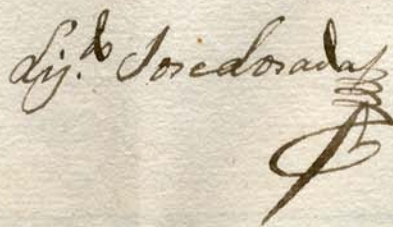 Liz.do Jose Losada